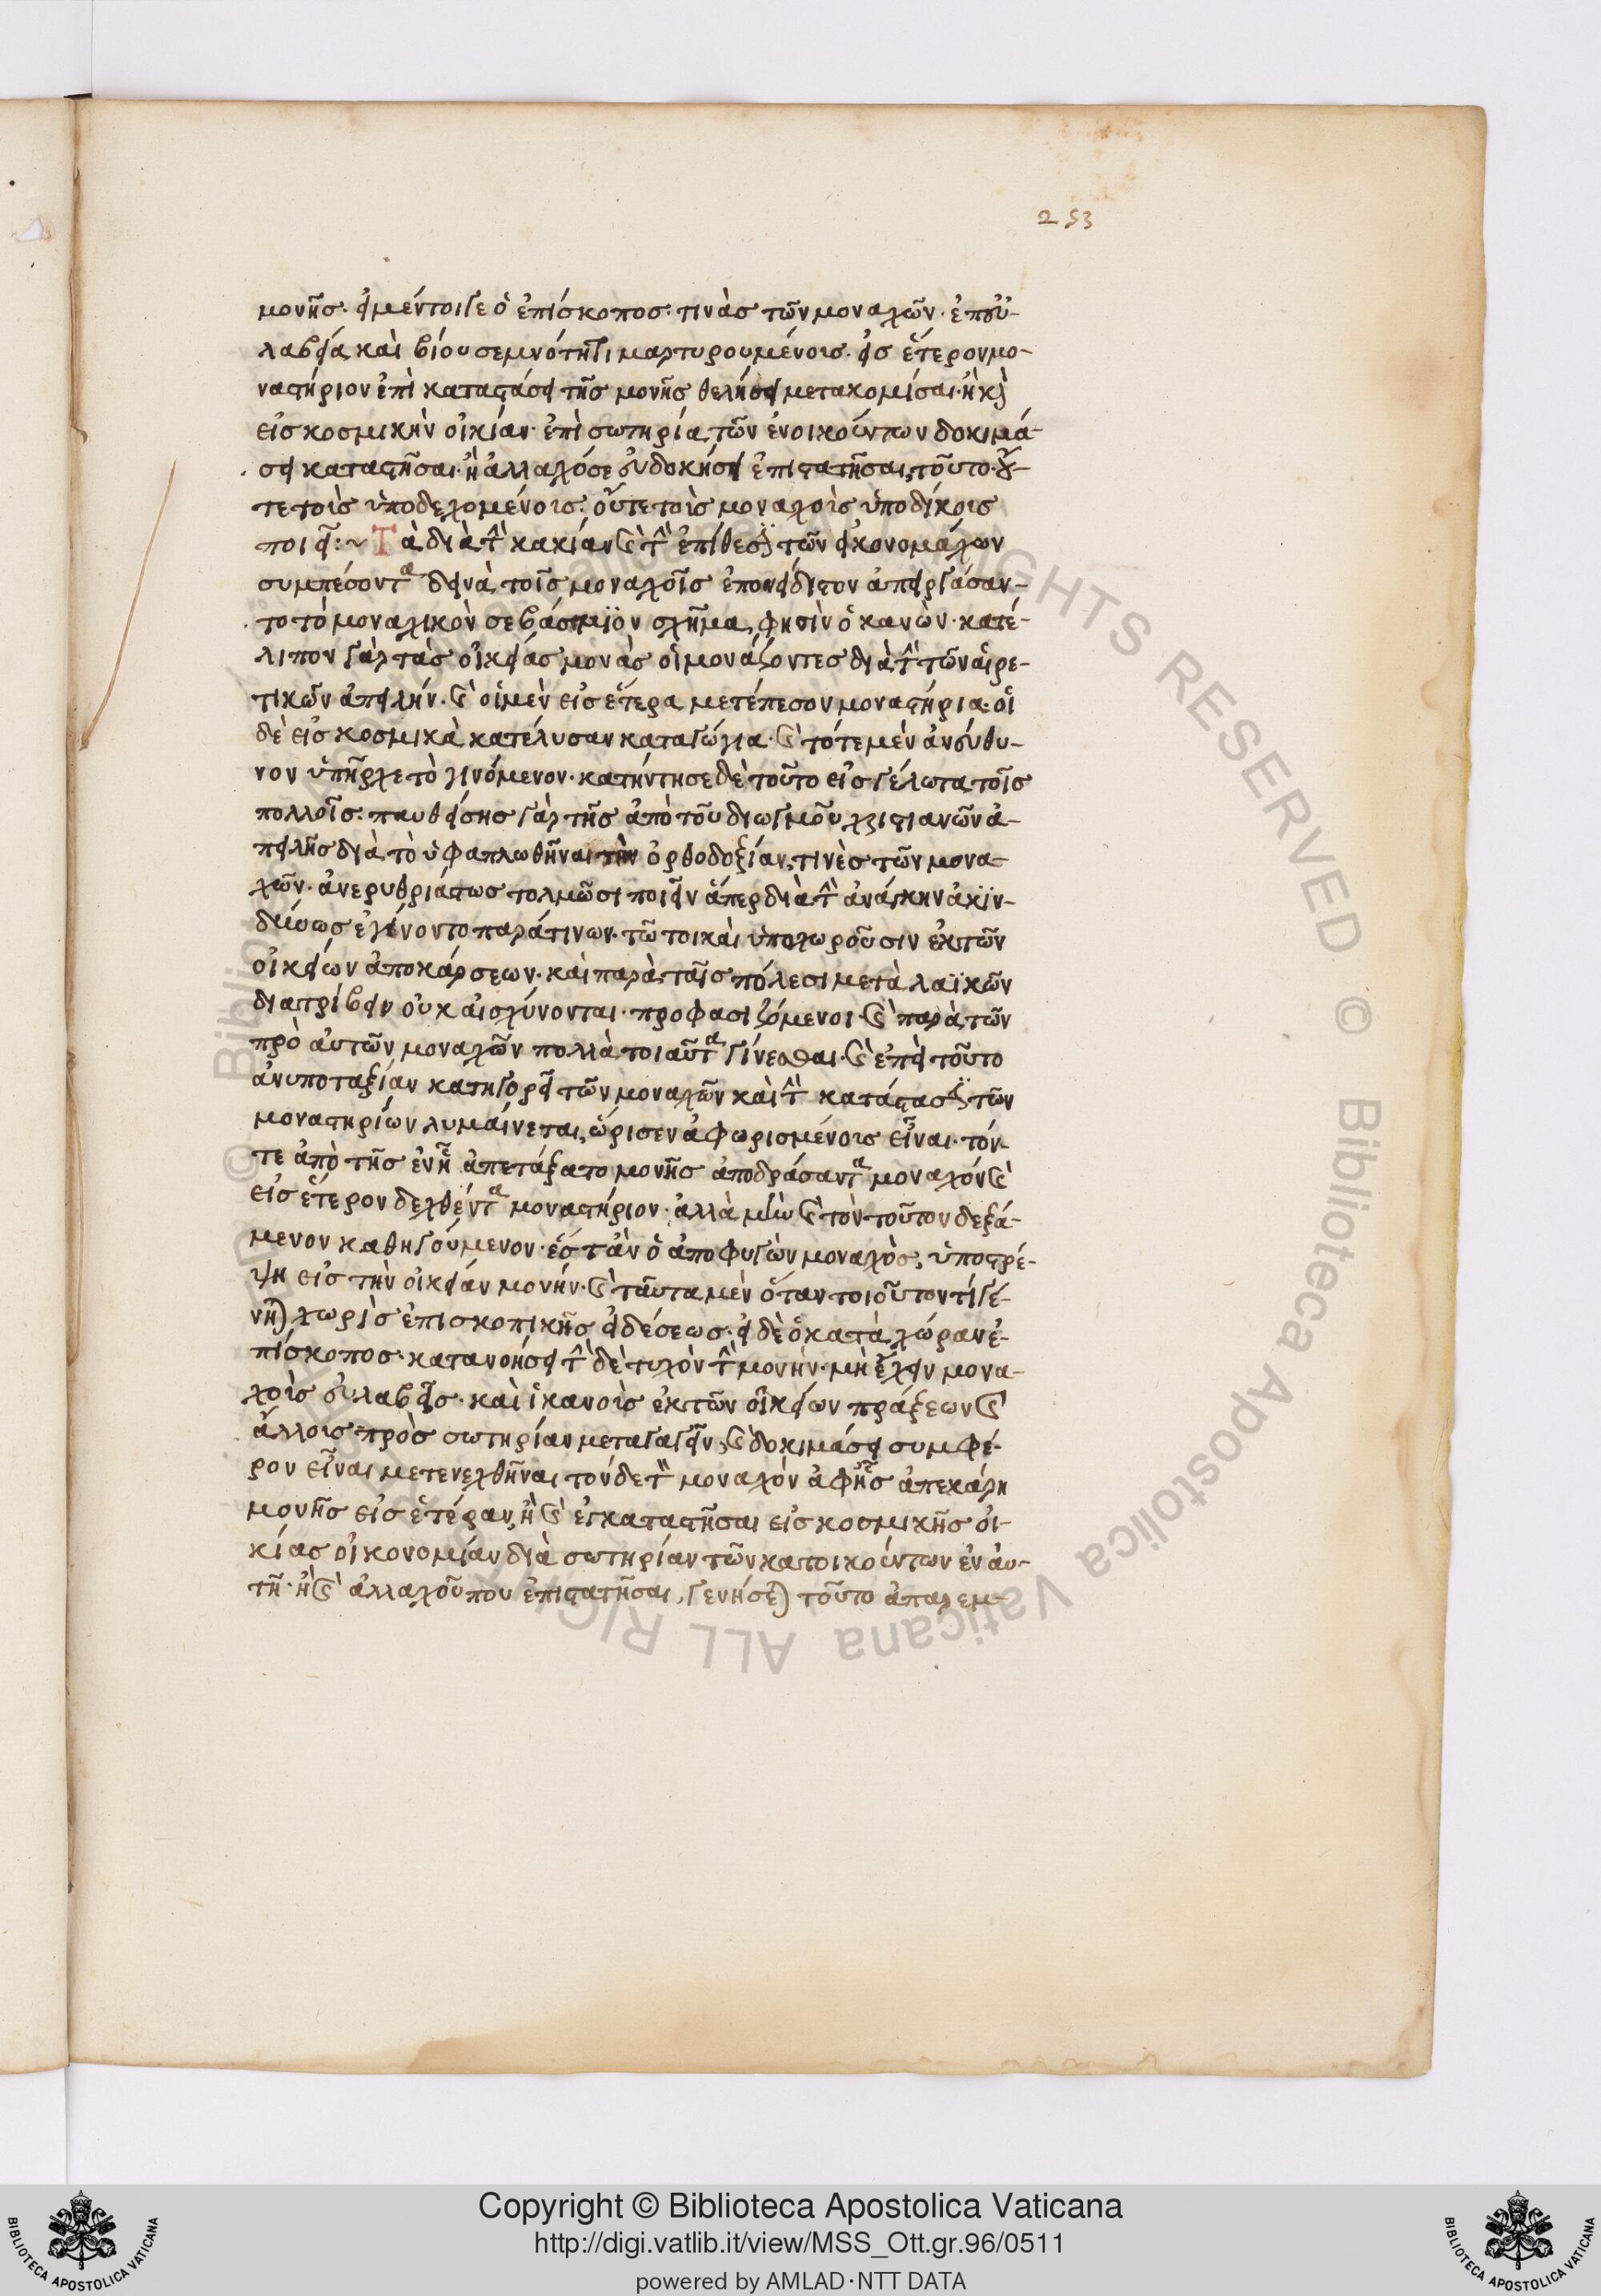 253
μονῆς· εἰ μέντοιγε ὁ ἐπίσκοπος· τινὰς τῶν μοναχῶν· ἐπ' εὐ-
λαβεία καὶ βίου σεμνότητι μαρτυρουμένοις· εἰς ἕτερον μο-
ναστήριον ἐπὶ καταστάσει τῆς μονῆς θελήσει μετακομίσαι· ἢ κ
εἰς κοσμικὴν οἰκίαν· ἐπὶ σωτηρία τῶν ἐνοικούντων δοκιμά-
σει καταστῆσαι· ἢ ἀλλαχόσε εὐδοκήσει ἐπιστατῆσαι, τοῦτο· οὔ-
τε τοὺς ὑποδεχομένους· οὔτε τοὺς μοναχοὺς ὑποδίκους
ποιεῖ:~ Τὰ διὰ τὴν κακίαν καὶ τὴν ἐπίθεσιν τῶν εἰκονομάχων
συμπέσοντα δεινὰ τοῖς μοναχοῖς ἐπονείδιστον ἀπειργάσαν-
το τὸ μοναχικὸν σεβάσμιον σχῆμα, φησὶν ὁ κανὼν· κατέ-
λιπον γὰρ τὰς οἰκείας μονὰς οἱ μονάζοντες διὰ τὴν τῶν αἱρε-
τικῶν ἀπειλήν· καὶ οἱ μὲν εἰς ἕτερα μετέπεσον μοναστήρια· οἱ
δὲ εἰς κοσμικὰ κατέλυσαν καταγώγια· καὶ τότε μὲν ἀνεύθυ-
νον ὑπῆρχε τὸ γινόμενον· κατήντησε δὲ τοῦτο εἰς γέλωτα τοῖς
πολλοῖς· παυθείσης γὰρ τῆς ἀπὸ τοῦ διωγμοῦ χριστιανῶν ἀ-
πειλῆς διὰ τὸ ὑφαπλωθῆναι τὴν ὀρθοδοξίαν, τινὲς τῶν μονα-
χῶν· ἀνερυθριάστως τολμῶσι ποιεῖν ἅπερ διὰ τὴν ἀνάγκην ἀκιν-
δύνως ἐγένοντο παρά τινων· τῶ τοι καὶ ὑποχωροῦσιν ἐκ τῶν
οἰκείων ἀποκάρσεων· καὶ παρὰ ταῖς πόλεσι μετὰ λαϊκῶν
διατρίβειν οὐκ αἰσχύνονται· προφασιζόμενοι· καὶ παρὰ τῶν
πρὸ αὐτῶν μοναχῶν πολλὰ τοιαῦτα γίνεσθαι· καὶ ἐπεὶ τοῦτο
ἀνυποταξίαν κατηγορεῖ τῶν μοναχῶν καὶ τὴν κατάστασιν τῶν
μοναστηρίων λυμαίνεται, ὥρισεν ἀφωρισμένους εἶναι· τόν
τε ἀπὸ τῆς ἐν ἧ ἀπετάξατο μονῆς ἀποδράσαντα μοναχόν καὶ
εἰς ἕτερον δεχθέντα μοναστήριον· ἀλλὰ μὴν καὶ τὸν τοῦτον δεξά-
μενον καθηγούμενον· ἔστ' ἂν ὁ ἀποφυγὼν μοναχὸς, ὑποστρέ-
ψη εἰς τὴν οἰκείαν μονήν· καὶ ταῦτα μὲν ὅταν τοιοῦτον τί γέ-
νηται χωρὶς ἐπισκοπικῆς εἰδέσεως· εἰ δὲ ὁ κατὰ χώραν ἐ-
πίσκοπος· κατανοήσει τὴν δὲ τυχὸν τὴν μονὴν· μὴ ἔχειν μονα-
χοὺς εὐλαβεῖς· καὶ ἱκανοὺς ἐκ τῶν οἰκείων πράξεων καὶ
ἄλλους πρὸς σωτηρίαν μεταγαγεῖν, καὶ δοκιμάσει συμφέ-
ρον εἶναι μετενεχθῆναι τόνδε τὸν μοναχὸν ἀφ' ἧς ἀπεκάρη
μονῆς εἰς ἑτέραν, ἢ καὶ ἐγκαταστῆσαι εἰς κοσμικῆς οἰ-
κίας οἰκονομίαν διὰ σωτηρίαν τῶν κατοικούντων ἐν αὐ-
τῆ· ἢ καὶ ἀλλαχοῦ που ἐπιστατῆσαι, γενήσεται τοῦτο ἀπαρεμ-
© Biblioteca Apostolica Vaticana ALL RIGHTS RESERVED
Copyright © Biblioteca Apostolica Vaticana
http://digi.vatlib.it/view/MSS_Ott.gr.96/0511
powered by AMLAD·NTT DATA
BIBLIOTECA APOSTOLICA VATICANA
BIBLIOTECA APOSTOLICA VATICANA